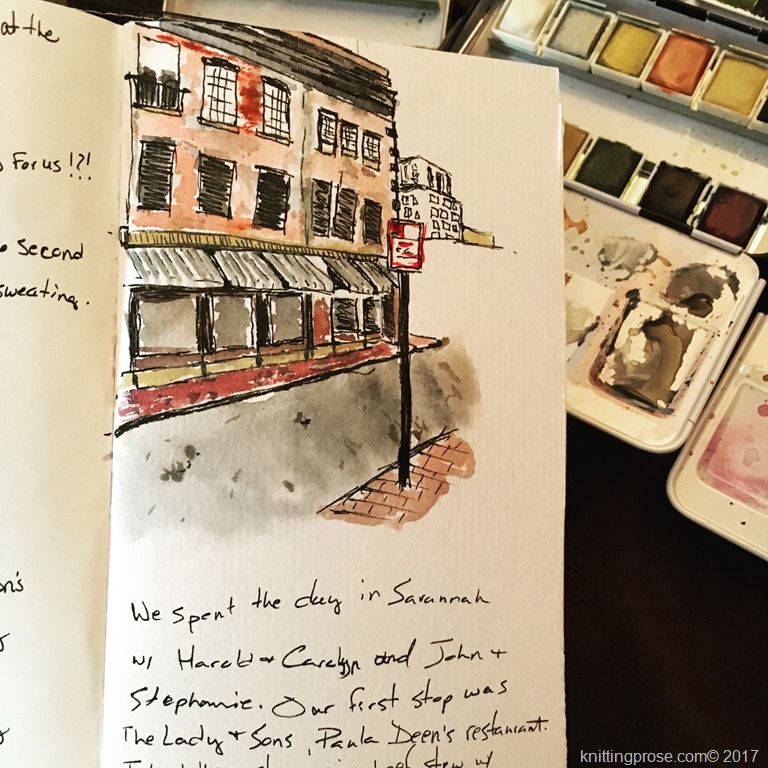 at the
For us!?!
Second
sweating.
We spent the day in Savannah
w/ Harold + Carolyn and John +
Stephanie. Our first stop was
The Lady + Sons, Paula Deen's restaurant.
stew w/
knittingprose.com© 2017